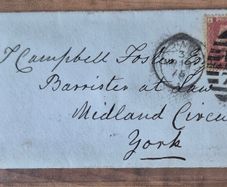 J Campbell Foster Esq
Barrister at Law
Midland Circu
York